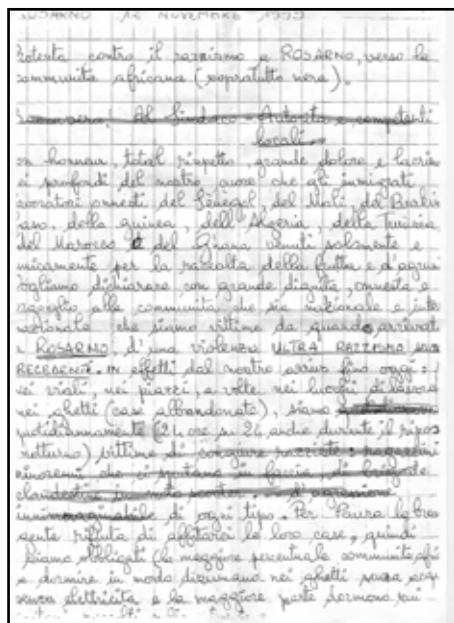 ROSARNO 12 NOVEMBRE 1999
Protesta contro il razzismo a ROSARNO, verso la
communita africana (sopratutto nera).
Al Sindaco - Autorita e competenti
locali
on honneur, total rispetto, grande dolore e lacrim
ei profondi del nostro cuore che gli immigrati
avoratori onnesti del Sénegal, del Mali, del Burkin
Faso, della guinea, dell'Algeria, della Tunisia
del Marocco e del Ghana venuti solamente e
nicamente per la raccolta della frutta e d'agrumi
vogliamo dichiarare con grande dignita, onnesta e
orgoglio alla communita che sia nazionale e inte
nazionale che siamo vittime da quando arrivati
a ROSARNO, d'una violenza ULTRA RAZZISMA senza
RECEDENTE. IN effetti dal nostro arrivo fino oggi:
nei viali, nei piazzi, a volte nei luochi di lavoro
nei ghetti (case abbandonate), siamo
quotidiannamente (24 ore su 24, anche durante il ripos
notturno) vittime di congiure razziste: ragazzini
minorenni che ci sputano in faccia, di brigate
clandestine in moto scooter d'agressione
innimmaginabile di ogni tipo. Per Paura la bra
gente rifiuta di affitarci le loro case, quindi
siamo obbligati (la maggiore percentuale communita afri
a dormire in modo disumano nei ghetti senza acqu
senza elettricita e la maggiore parte dormono sui